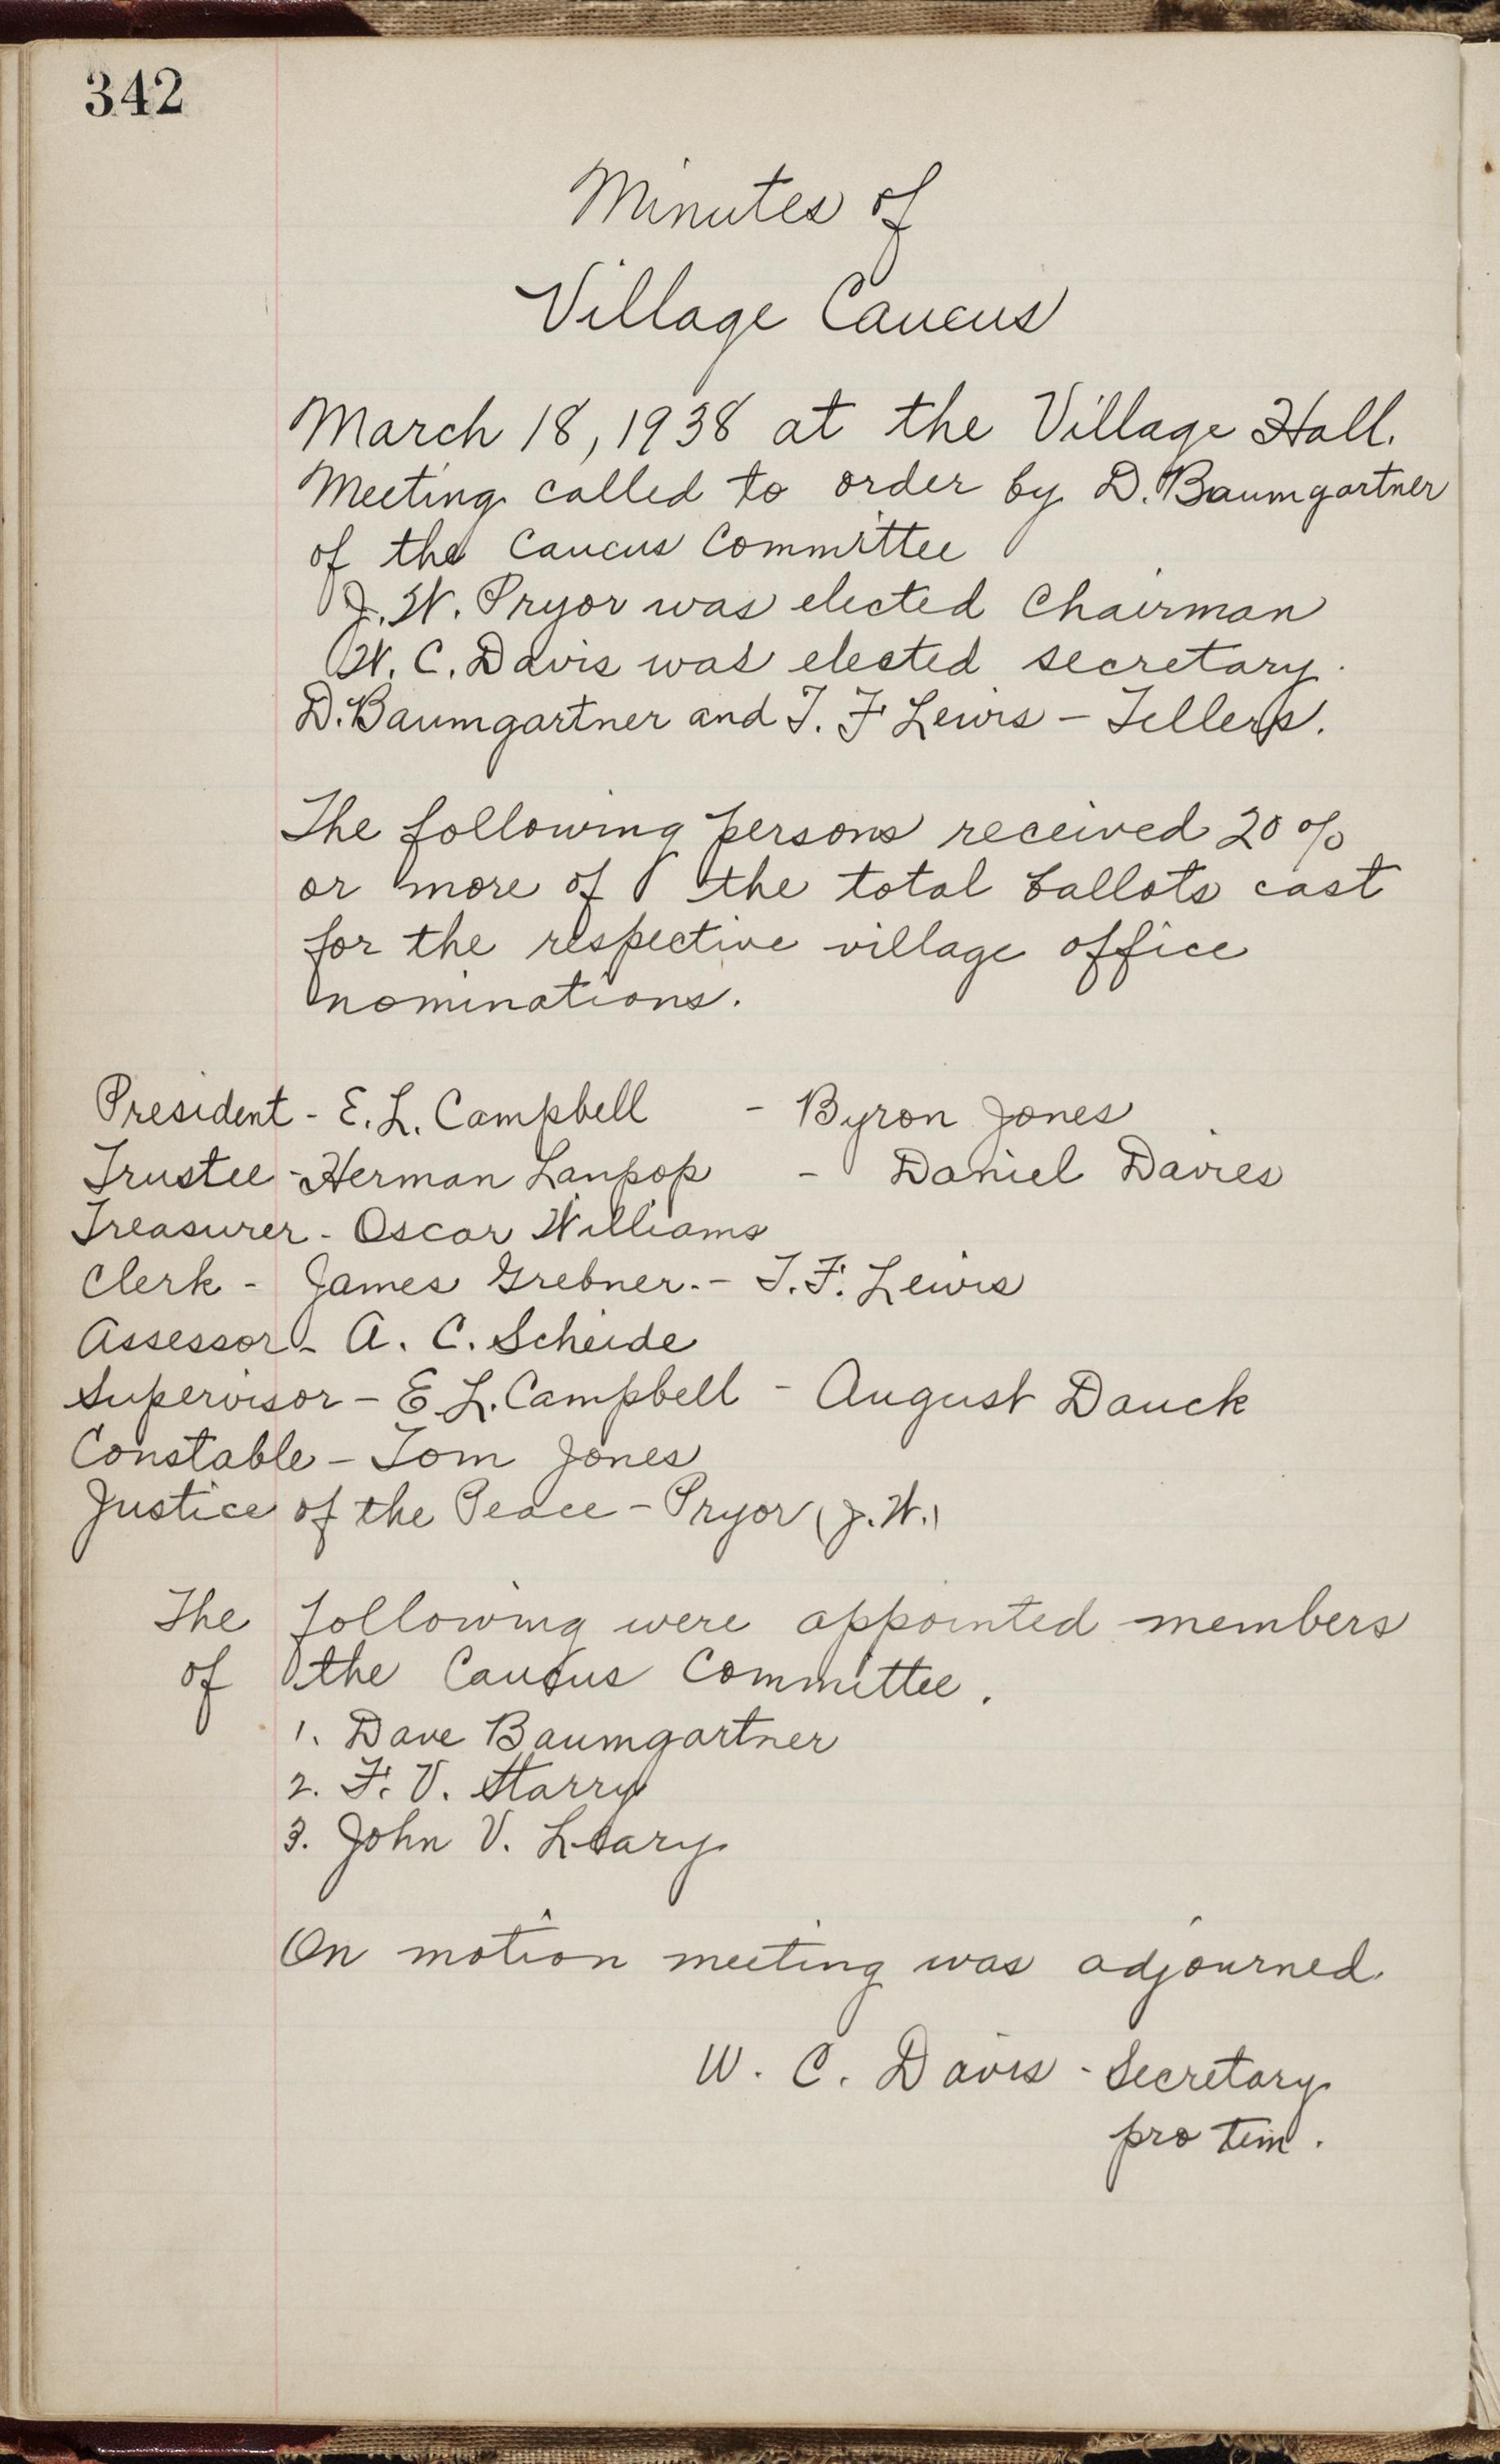 342
Minutes of
Village Caucus
March 18, 1938 at the Village Hall.
Meeting called to order by D. Baumgartner
of the Caucus Committee
J. W. Pryor was elected Chairman
W. C. Davis was elected secretary.
D. Baumgartner and T. F Lewis – Tellers.
The following persons received 20%
or more of the total ballots cast
for the respective village office
nominations.
President - E. L. Campbell - Byron Jones
Trustee - Herman Lanpop - Daniel Davies
Treasurer - Oscar Williams
Clerk - James Grebner. - T. F. Lewis
Assessor - A. C. Scheide
Supervisor - E. L. Campbell - August Dauck
Constable - Tom Jones
Justice of the Peace - Pryor (J. W.)
The following were appointed members
of the Caucus Committee.
1. Dave Baumgartner
2. F. V. Starry
3. John V. Leary
On motion meeting was adjourned.
W. C. Davis - Secretary
pro tem.